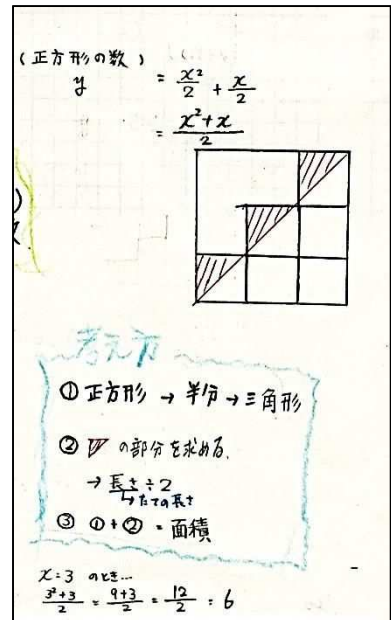 (正方形の数)
y = x²/2 + x/2
= x²+x/2
考え方
① 正方形 → 半分 → 三角形
② の部分を求める.
→ 長さ÷2
↳たての長さ
③ ①+② = 面積
x=3 のとき...
3²+3/2 = 9+3/2 = 12/2 = 6